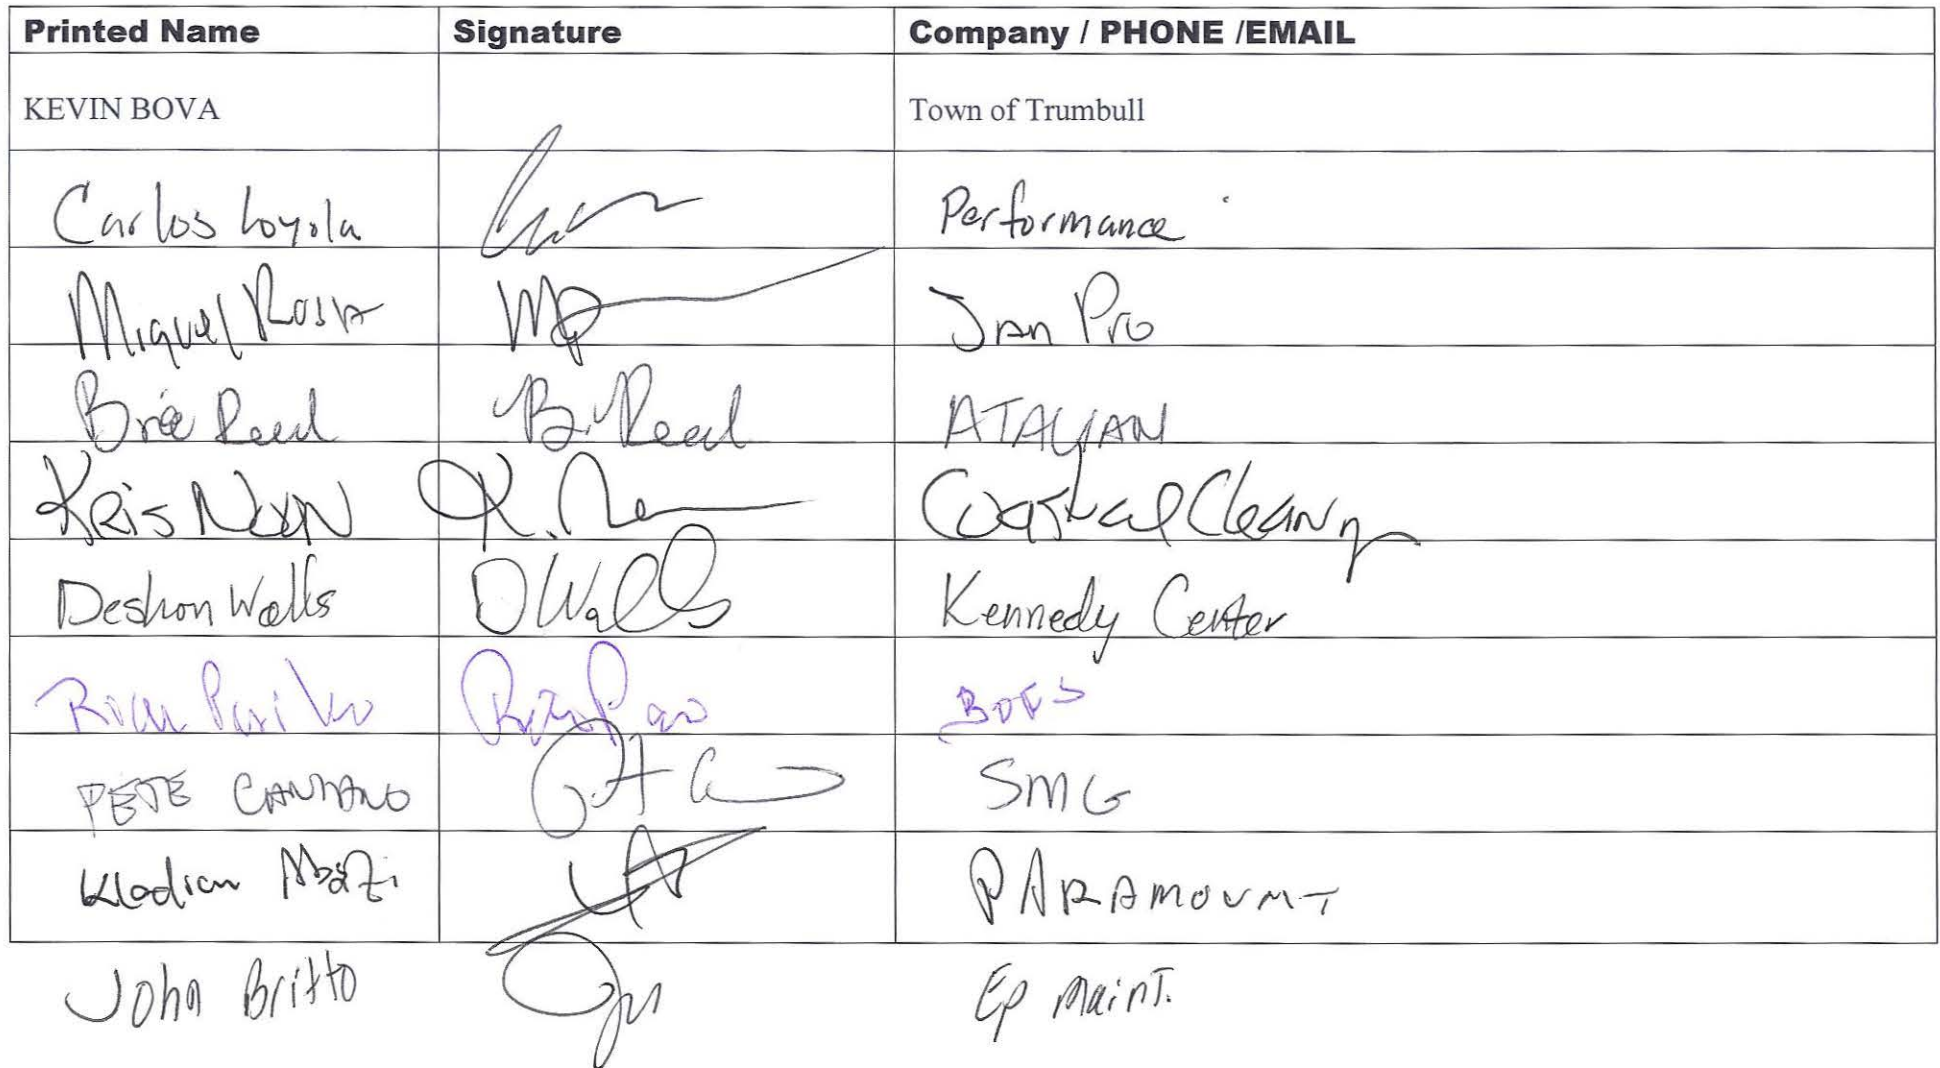 Printed Name Signature Company / PHONE /EMAIL
KEVIN BOVA Town of Trumbull
Carlos Loyola Performance
Miguel Rosa MR Jan Pro
Brie Reed B. Reed ATALIAN
Kris Nixon K. Coastal Cleaning
Deshon Walls D Walls Kennedy Center
PETE SMG
Kladian Abazi PARAMOUNT
John Britto EP Maint.